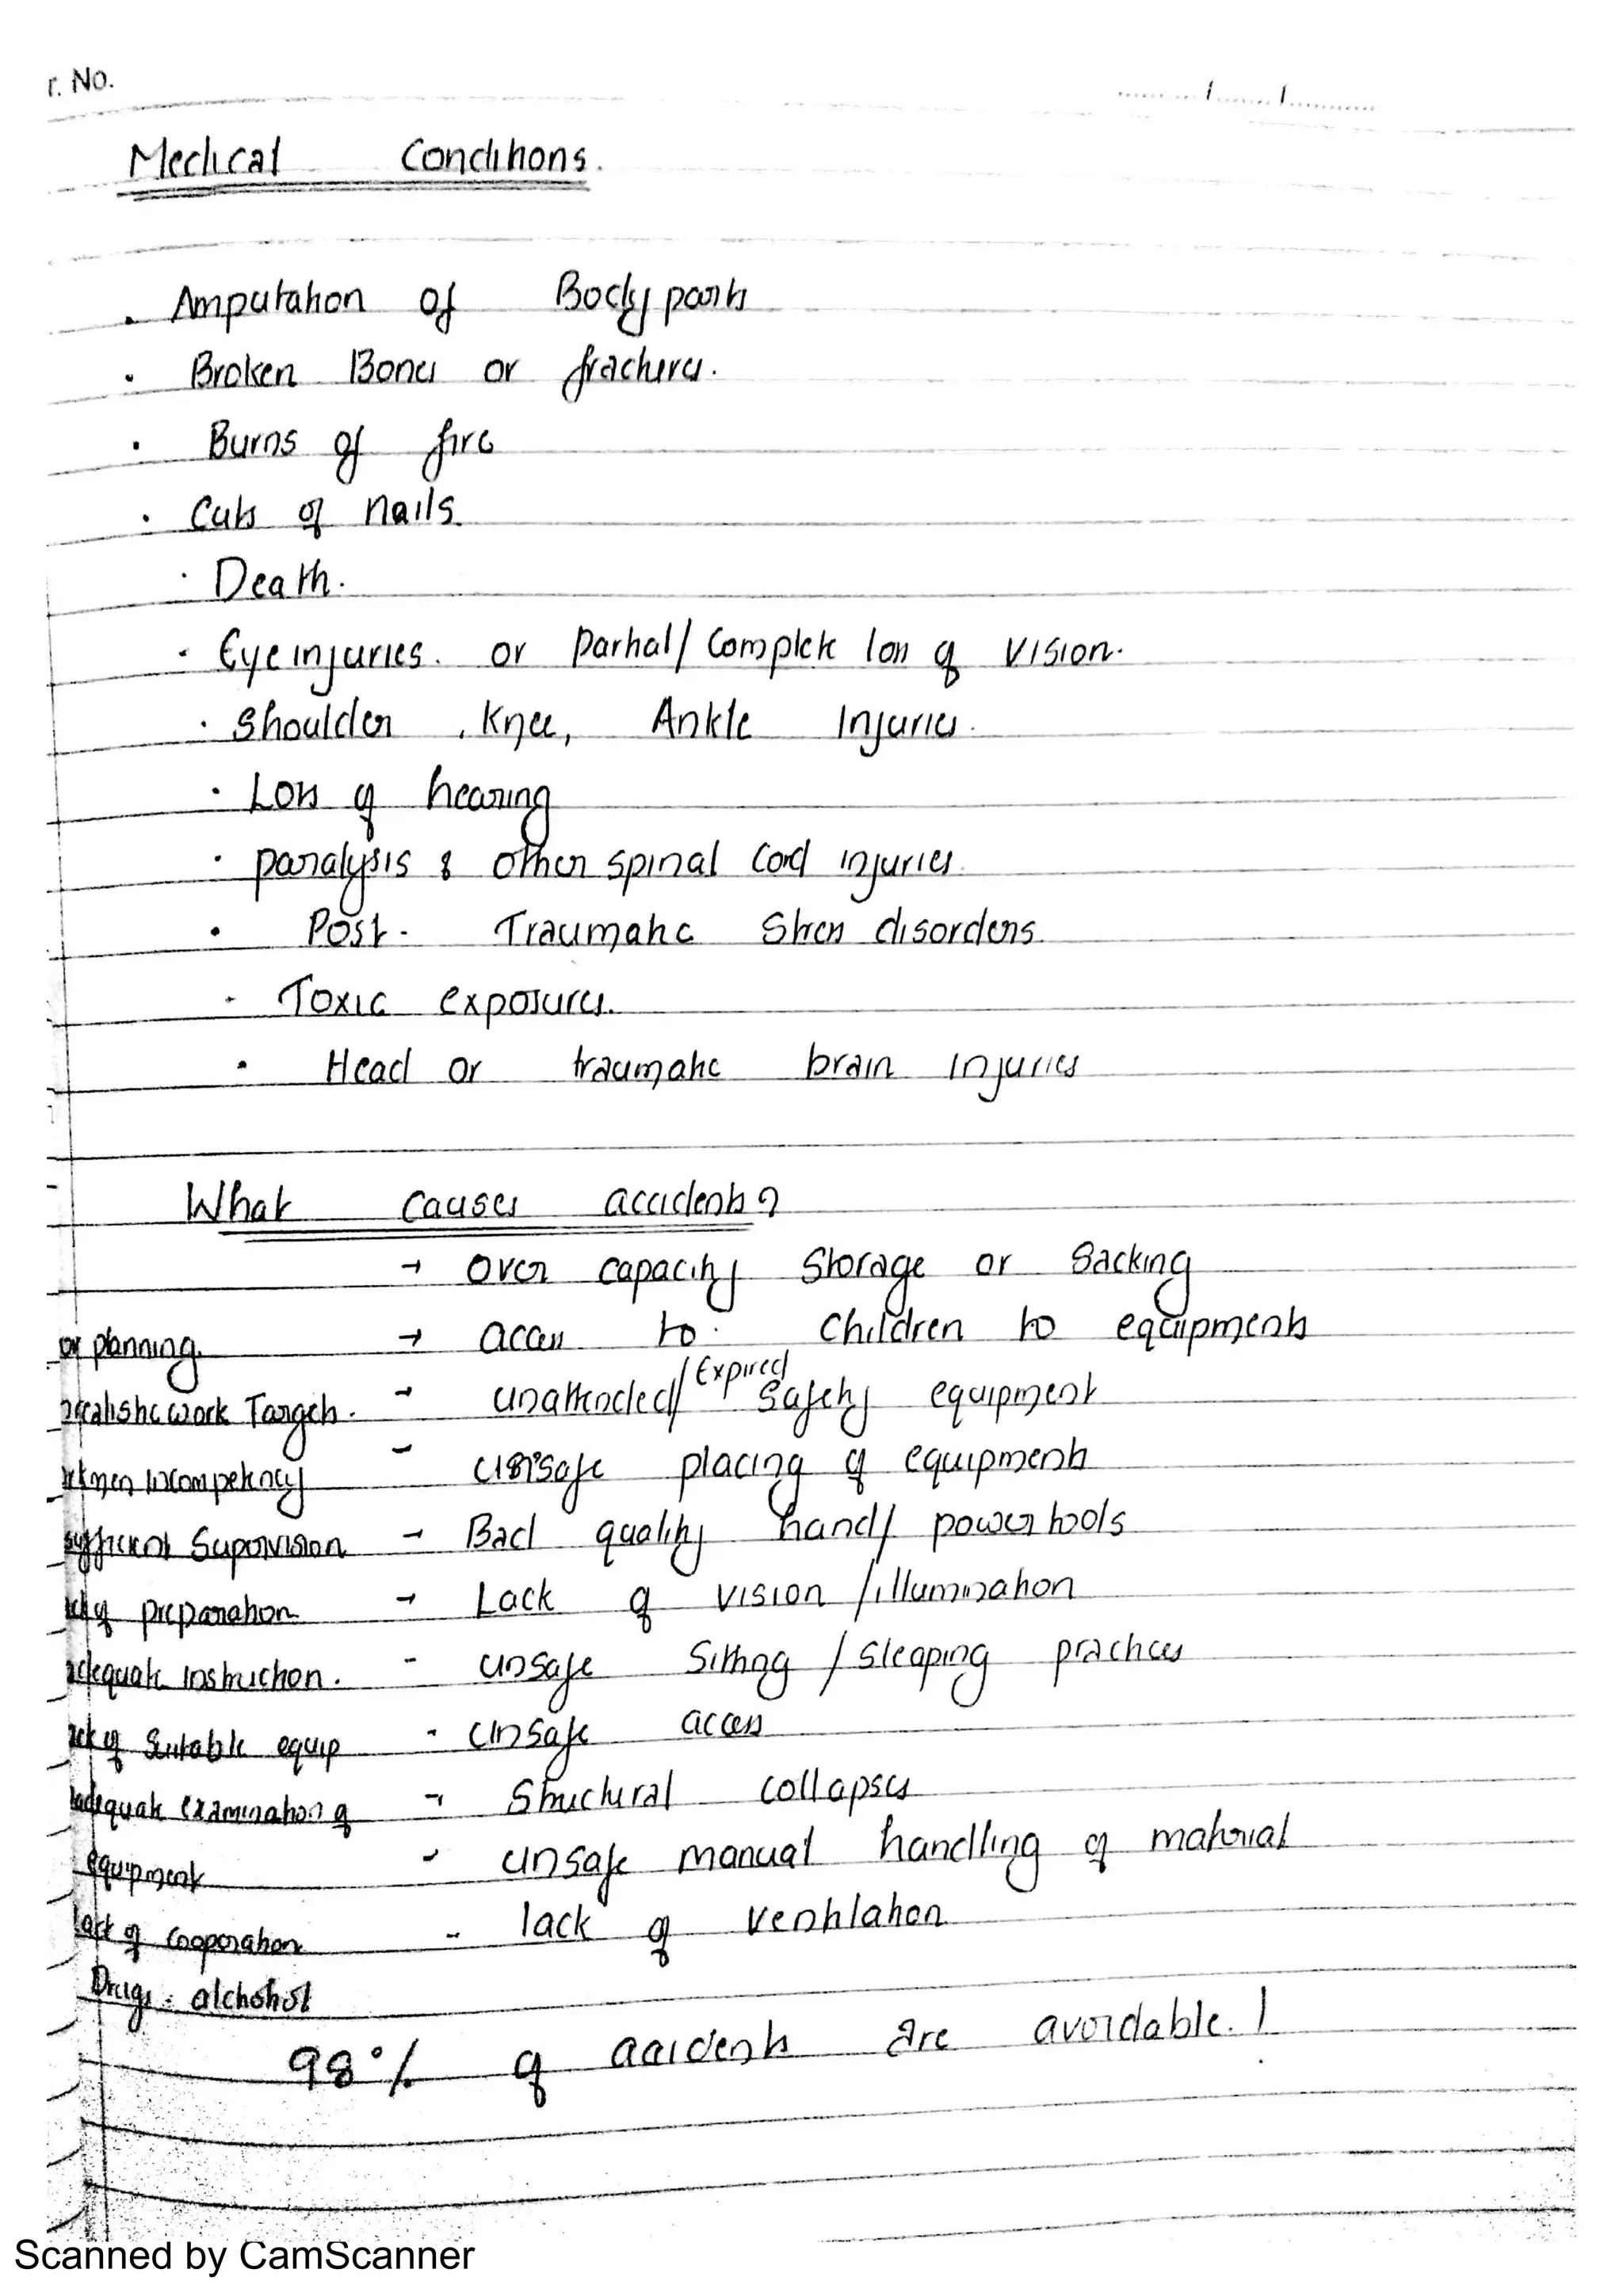 r. No.
Medical Conditions.
. Amputation of Body parts
. Broken Bones or fractures.
. Burns of fire
. Cuts of nails.
. Death.
. Eye injuries. or Partial/ Complete loss of vision.
. Shoulder , Knee, Ankle Injuries.
. Loss of hearing
. paralysis & other spinal Cord injuries.
. Post- Traumatic Stress disorders.
. Toxic exposures.
. Head or traumatic brain injuries
What causes accidents?
→ Over capacity Storage or Sacking
or planning. → access to. Children to equipments
realistic work Targets. - unattended/ Expired Safety equipment
rkmen Incompetency - unsafe placing of equipments
sufficient Supervision - Bad quality hand/ power tools
ck of preparation → Lack of vision /illumination
adequate instruction. - unsafe Sitting / Sleeping practices
ack of Suitable equip - unsafe access
nadequate examination of - Structural collapses
equipment - unsafe manual handling of material
Lack of Cooperation - lack of ventilation
Drugs - alchohol
98% of accidents are avoidable. !
Scanned by CamScanner